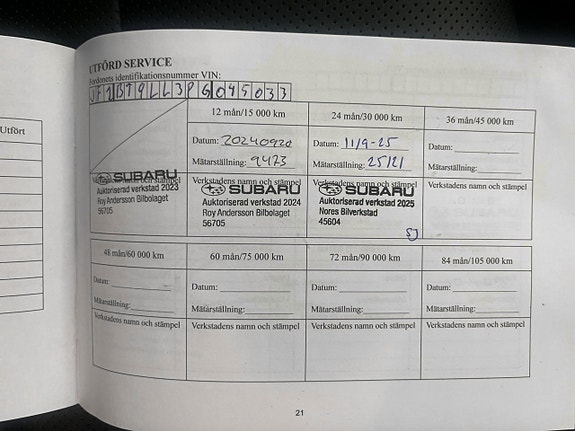 Utfört
UTFÖRD SERVICE
Fordonets identifikationsnummer VIN:
12 mån/15 000 km
24 mån/30 000 km
36 mån/45 000 km
Datum: 20240920
Datum: 11/9-25
Datum:
Mätarställning: 9473
Mätarställning: 25121
Mätarställning:
Verkstadens namn och stämpel
Verkstadens namn och stämpel
Verkstadens namn och stämpel
Verkstadens namn och stämpel
SUBARU
Auktoriserad verkstad 2023
Roy Andersson Bilbolaget
56705
SUBARU
Auktoriserad verkstad 2024
Roy Andersson Bilbolaget
56705
SUBARU
Auktoriserad verkstad 2025
Nores Bilverkstad
45604
SJ
48 mån/60 000 km
60 mån/75 000 km
72 mån/90 000 km
84 mån/105 000 km
Datum:
Datum:
Datum:
Datum:
Mätarställning:
Mätarställning:
Mätarställning:
Mätarställning:
Verkstadens namn och stämpel
Verkstadens namn och stämpel
Verkstadens namn och stämpel
Verkstadens namn och stämpel
21